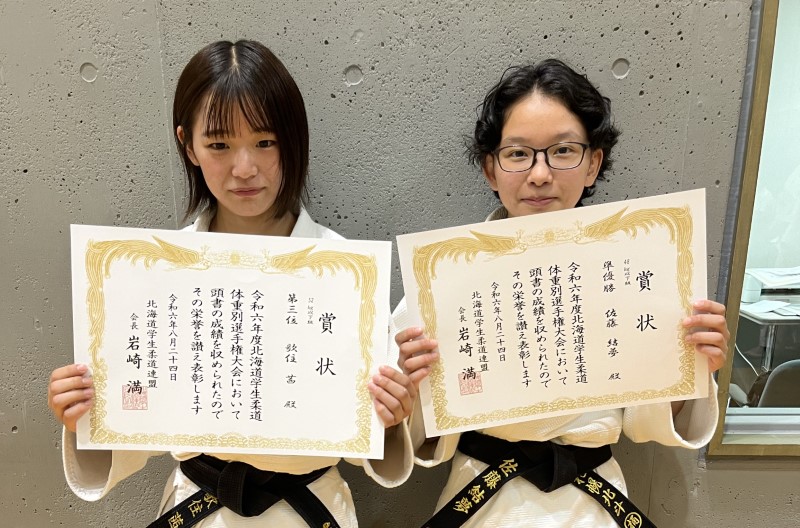 賞状
第三位
殿
令和六年度北海道学生柔道
体重別選手権大会において
頭書の成績を収められたので
その栄誉を讃え表彰します
令和六年八月二十四日
北海道学生柔道連盟
会長 岩崎 満
賞状
準優勝 佐藤 結夢 殿
令和六年度北海道学生柔道
体重別選手権大会において
頭書の成績を収められたので
その栄誉を讃え表彰します
令和六年八月二十四日
北海道学生柔道連盟
会長 岩崎 満
佐藤結夢
幌北斗